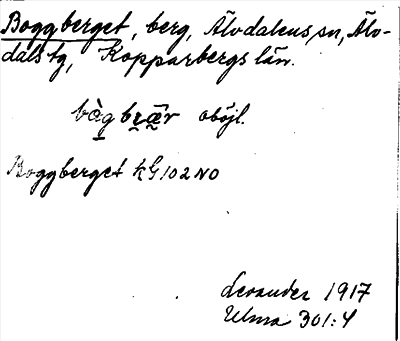 Boggberget, berg, Älvdalens sn, Älv-
dals tg, Kopparbergs län.
bàg bræ̃r oböjl.
Boggberget kG 102 NO
Levander 1917
Ulma 301:4